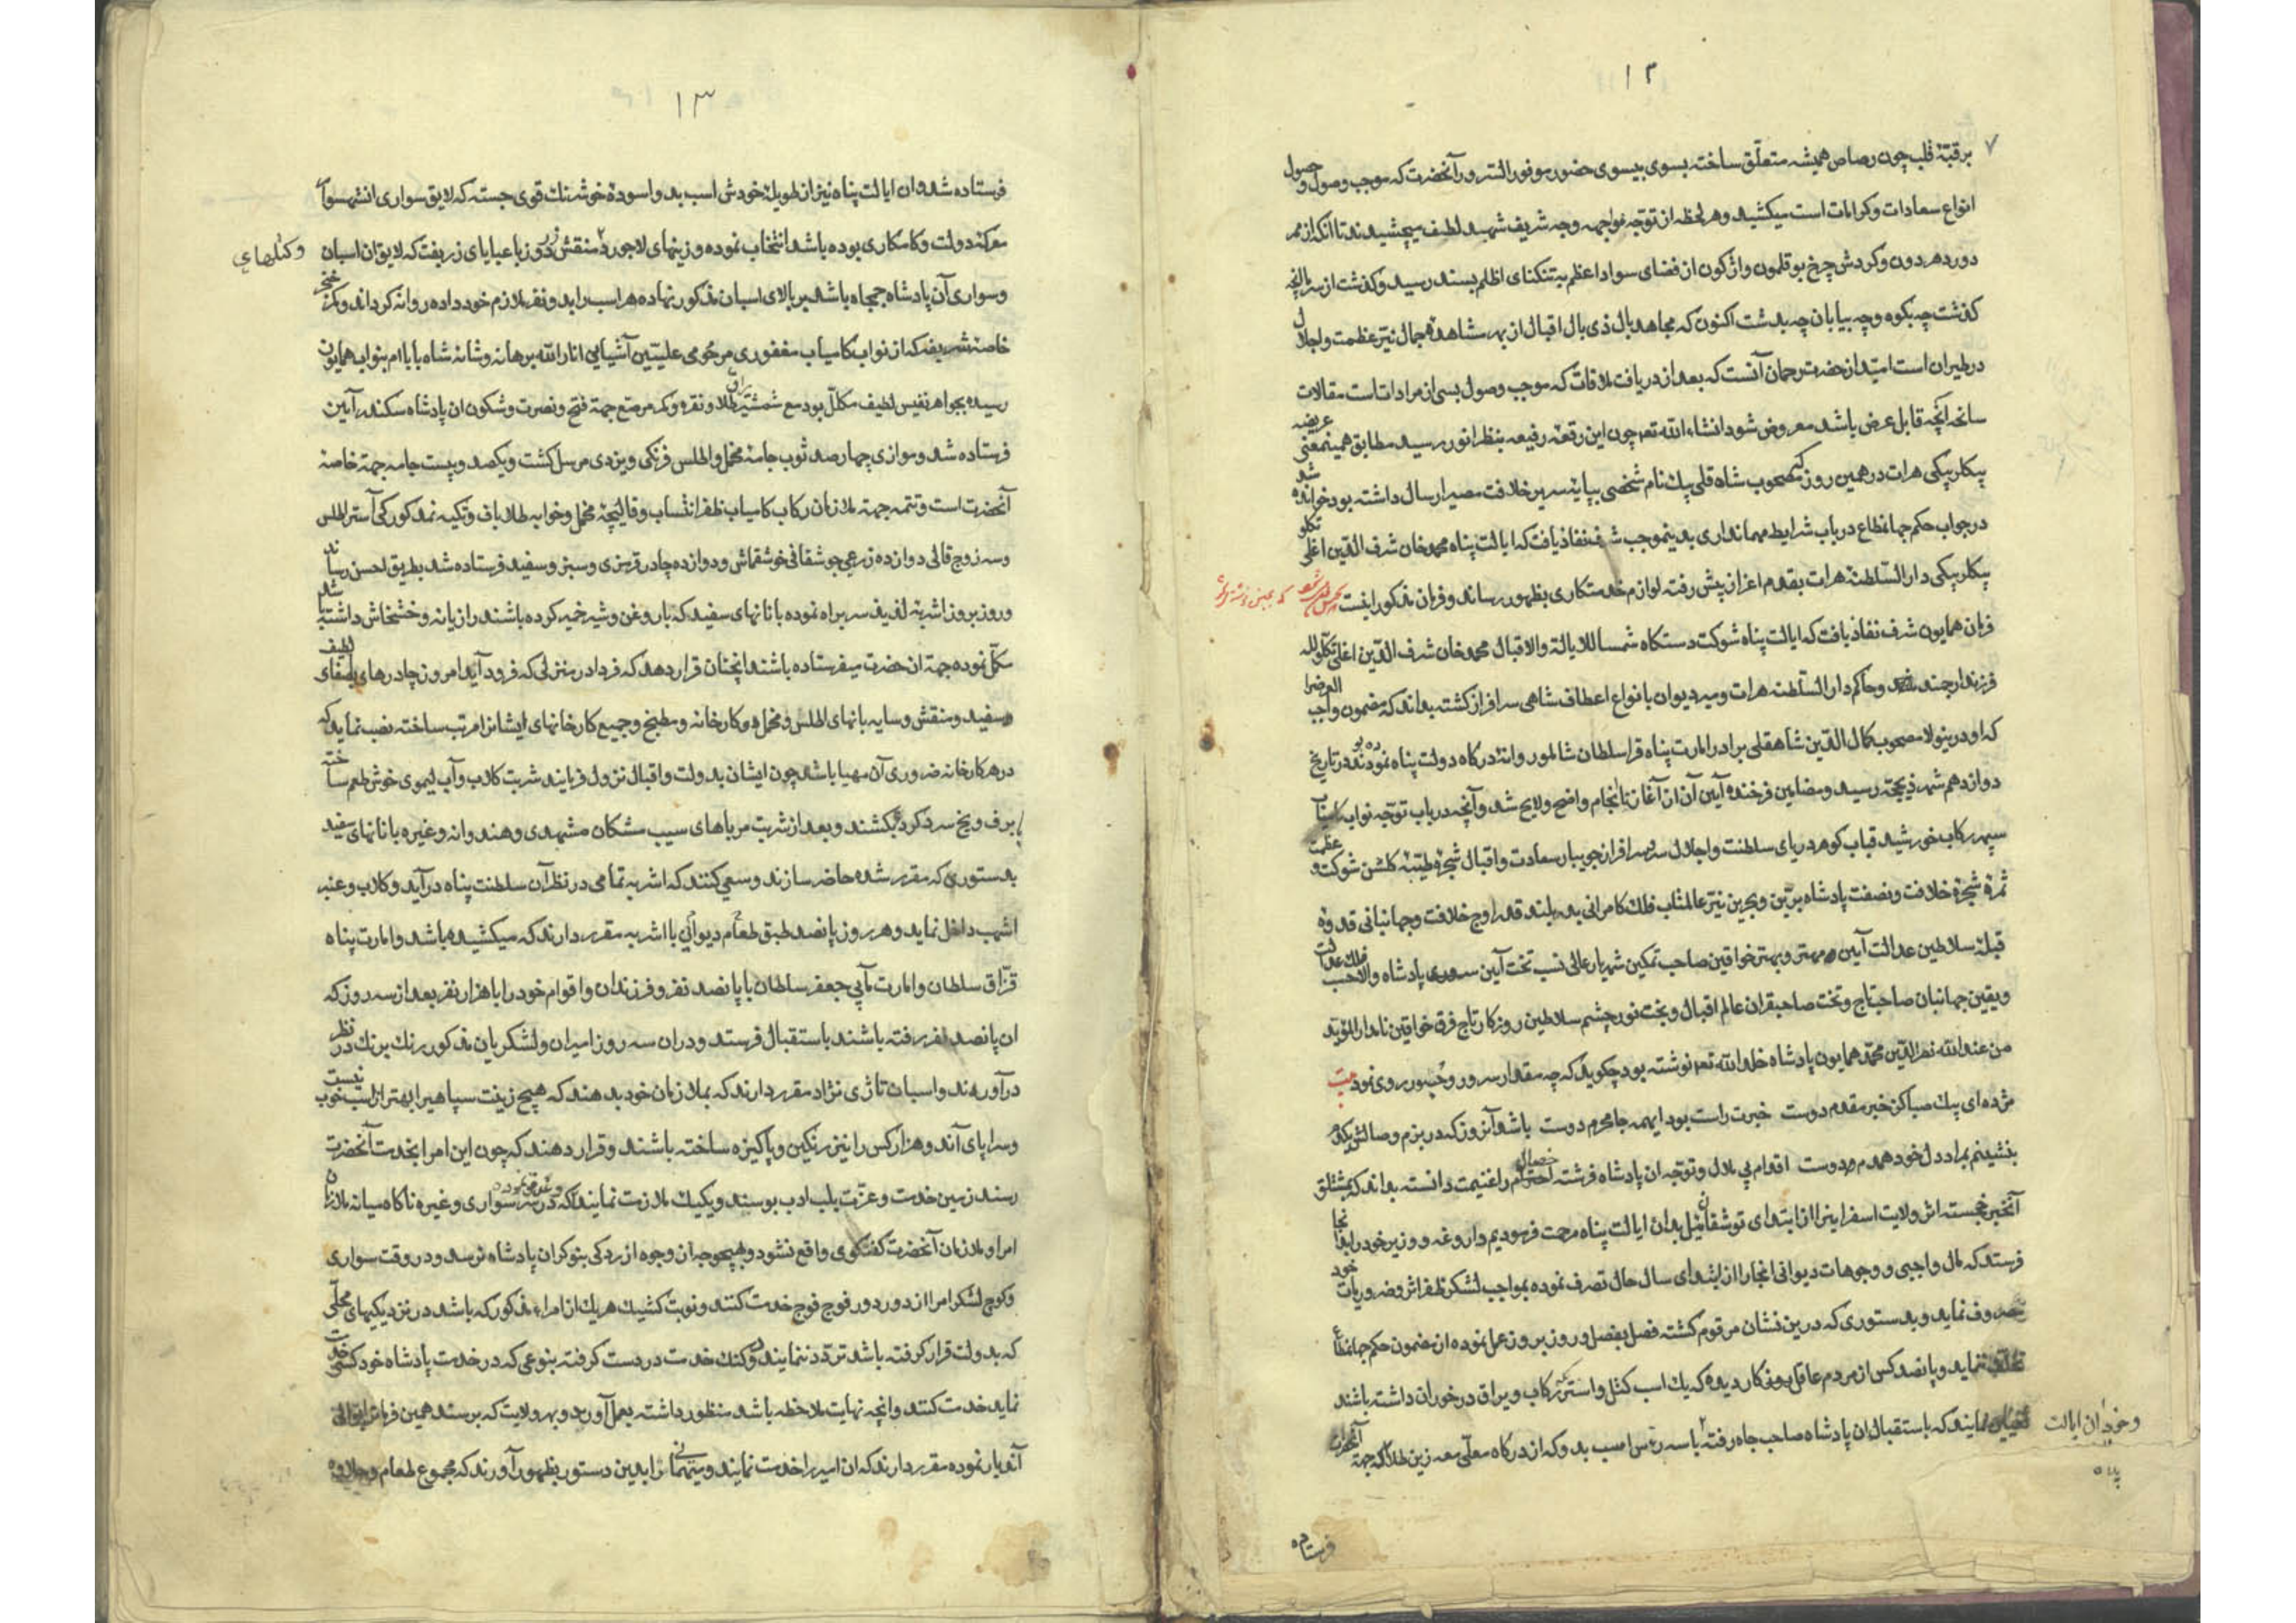 ۱۲
برقبهٔ قلب چون رصاص همیشه متعلق ساخته بسوی بیسوی حضور موفور السرور آنحضرت که موجب وصول و حصول
انواع سعادات و کرامات است میکشید و هر لحظه از توجه مواجهه وجه شریف شهد لطیف میچشیدند تا آنکه از ممر
دور دهر دون و کردش چرخ بوقلمون واژکون از فضای سواد اعظم بتنکنای اظلم بسند رسید و کذشت از سر ما آنچه
کذشت چه بکوه و چه بیابان چه بدشت اکنون که مجاهد بال ذی بال اقبال از بهر مشاهدهٔ جمال نیر عظمت و اجلال
در طیران است امید از حضرت رحمان آنست که بعد از دریافت ملاقات که موجب وصول بسی از مرادات است مقالات
سانحه آنچه قابل عرض باشد معروض شود انشاء الله تعه چون این رقعهٔ رفیعه بنظر انور رسید مطابق همینمعنی عریضه
بیکلربیکی هرات در همین روز که مصحوب شاه قلی بیك نام شخصی بپایهٔ سریر خلافت مصیر ارسال داشته بود خوانده شد
در جواب حکم جهانمطاع در باب شرایط مهمانداری بدینموجب شرف نفاذ یافت که ایالت پناه محمدخان شرف الدین اغلی تکلو
بیکلربیکی دار السلطنهٔ هرات بقدم اعزاز پیش رفته لوازم خدمتکاری بظهور رساند و فرمان مذکور اینست
فرمان همایون شرف نفاذ یافت که ایالت پناه شوکت دستکاه شمسا للایالة والاقبال محمدخان شرف الدین اغلی تکلو لله
فرزند ارجمند و حاکم دار السلطنه هرات و میر دیوان بانواع اعطاف شاهی سرافراز کشته بداند که مضمون واجب العرضرا
که او درینولا مصحوب کمال الدین شاهقلی برادر امارت پناه قرا سلطان شاملو روانهٔ درکاه دولت پناه نموده بودند در تاریخ
دوازدهم شهر ذیحجه رسید و مضامین فرخنده آیین آن از آغاز تا انجام واضح و لایح شد و آنچه در باب توجه نواب کامیاب
سپهر رکاب خورشید قباب کوهر دریای سلطنت و اجلال سرو سرافراز جویبار سعادت و اقبال شجرهٔ طیبهٔ کلشن شوکت و عظمت
ثمرهٔ شجرهٔ خلافت و نصفت پادشاه برین و بحرین نیر عالمتاب فلك کامرانی بدر بلند قدر اوج خلافت و جهانبانی قدوهٔ
قبلهٔ سلاطین عدالت آیین مهتر و بهتر خواقین صاحب تمکین شهریار عالی نسب تخت آیین سروری پادشاه والا حسب فلك عدالت
و یقین جهانبان صاحب تاج و تخت صاحبقران عالم اقبال و بخت نور چشم سلاطین روزکار تاج فرق خواقین نامدار المؤید
من عند الله نصر الدین محمد همایون پادشاه خلد الله تعه نوشته بود چکوید که چه مقدار سرور و حبور روی نمود بیت
مژده ای پیك صبا کز خبر مقدم دوست خبرت راست بود ایهمه جا محرم دوست باشد آنروز که در بزم وصالش یکدم
بنشینم بمراد دل خود همدم دوست اقدام بی ملال و توجه آن پادشاه فرشته خصال را غنیمت دانسته بداند که بمشتلق
آنخبر خجسته اثر ولایت اسفراینرا از ابتدای توشقان ئیل بدان ایالت پناه مرحمت فرمودیم داروغه و وزیر خود را بدانجا
فرستد که مال واجبی و وجوهات دیوانی انجا را از ابتدای سال حال تصرف نموده بمواجب لشکر ظفر اثر و ضروریات خود
مصروف نماید و بدستوری که درین نشان مرقوم کشته فصل بفصل و روز بروز عمل نموده از مضمون حکم جهانمطاع
تخلف ننماید و پانصد کس از مردم عاقل روزکار دیده که یك اسب کتل و استر رکاب و یراق درخور آن داشته باشند
تعیین نمایند که باستقبال آن پادشاه صاحب جاه رفته با سه رأس اسب بدو که از درکاه معلی معه زین طلا که جهة آنحضرت
و خود آن ایالت پناه
فرستاده
۱۳
فرستاده شد و آن ایالت پناه نیز از طویلهٔ خود شش اسب بدو اسودهٔ خوشرنك قوی جسته که لایق سواری انشهسوار
معرکهٔ دولت و کامکاری بوده باشد انتخاب نموده و زینهای لاجورد منقش زردوز با عبایای زربفت که لایق ان اسبان
و کتلهای
و سواری آن پادشاه جمجاه باشد بر بالای اسبان مذکور نهاده هر اسب را بدو نفر ملازم خود داده روانه کرداند و کمر خنجر
خاصهٔ شریفه که از نواب کامیاب مغفوری مرحومی علیین آشیانی انار الله برهانه و شانه شاه باباام بنواب همایون
رسیده بجواهر نفیس لطیف مکلل بود مع شمشیر یراق طلا و نقره و کمر مرصع جهة فتح و نصرت و شکون ان پادشاه سکندر آیین
فرستاده شد و موازی چهارصد ثوب جامهٔ مخمل و اطلس فرنکی و یزدی مرسل کشت و یکصد و بیست جامه جهة خاصهٔ
آنحضرت است و تتمه جهة ملازمان رکاب کامیاب ظفر انتساب و قالیچهٔ مخمل دو خوابه طلاباف و تکیه نمد کورکی آستر اطلس
و سه زوج قالی دوازده زرعی جوشقانی خوشقماش و دوازده چادر قرمزی و سبز و سفید فرستاده شد بطریق احسن رساند
و روز بروز اشربه لذیذ سربراه نموده با نانهای سفید که با روغن و شیر خمیر کرده باشند رازیانه و خشخاش داشته باشد
مکمل نموده جهة ان حضرت میفرستاده باشند انچنان قرار دهد که فردا در منزلی که فرود آید امروز چادرهای لطیف باصفای
سفید و منقش و سایه بانهای اطلس و مخمل و کارخانه و مطبخ و جمیع کارخانهای ایشانرا مرتب ساخته نصب نمایند که
در هر کارخانه ضروری آن مهیا باشد چون ایشان بدولت و اقبال نزول فرمایند شربت کلاب و آب لیموی خوش طعم ساخته
ببرف و یخ سرد کرده بکشند و بعد از شربت مرباهای سیب مشکان مشهدی و هندوانه و غیره با نانهای سفید
بدستوری که مقرر شده حاضر سازند و سعی کنند که اشربه تمامی در نظر آن سلطنت پناه درآید و کلاب و عنبر
اشهب داخل نماید و هر روز پانصد طبق طعام دیوانی با اشربه مقرر دارند که میکشیده باشد و امارت پناه
قزاق سلطان و امارت مآبی جعفر سلطان با پانصد نفر و فرزندان و اقوام خود را با هزار نفر بعد از سه روز که
ان پانصد نفر رفته باشند باستقبال فرستد و در ان سه روز امیران و لشکریان مذکور رنك برنك در نظر
درآورند و اسبان تاژی نژاد مقرر دارند که بملازمان خود بدهند که هیچ زینت سپاهیرا بهتر از اسب خوب نیست
و سراپای آند و هزار کس را نیز رنکین و پاکیزه ساخته باشند و قرار دهند که چون این امرا بخدمت آنحضرت
رسند زمین خدمت و عزت بلب ادب بوسند و یکیك ملازمت نمایند که در سواری و غیره ناکاه میانه ملازمان
امرا و ملازمان آنحضرت کفتکوی واقع نشود و بهیچوجه از وجوه ازردکی بنوکران پادشاه نرسد و در وقت سواری
و کوچ لشکر امرا از دور دور فوج فوج خدمت کنند و نوبت کشیك هر یك از امراء مذکور که باشد در نزدیکیهای محلی
که بدولت قرار کرفته باشد تردد نمایند و کتك خدمت در دست کرفته بنوعی که در خدمت پادشاه خود کسی خدمت
نماید خدمت کنند و انچه نهایت ملاحظه باشد منظور داشته بعمل آورند و بهر ولایت که برسند همین فرمان
آندیار نموده مقرر دارند که ان امیر را خدمت نمایند و میهمانی را بدین دستور بظهور آورند که مجموع طعام و حلاوه